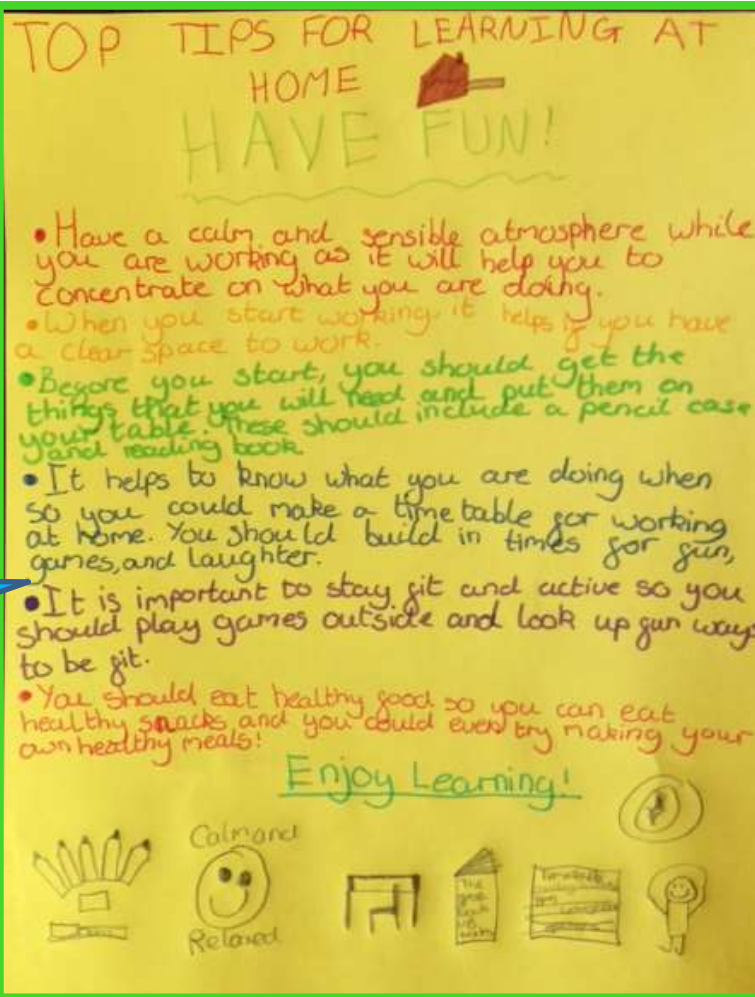 TOP TIPS FOR LEARNING AT
HOME
HAVE FUN!
• Have a calm and sensible atmosphere while
you are working as it will help you to
concentrate on what you are doing.
• When you start working, it helps if you have
a clear space to work.
• Before you start, you should get the
things that you will need and put them on
your table. These should include a pencil case
and reading book
• It helps to know what you are doing when
so you could make a time table for working
at home. You should build in times for fun,
games, and laughter.
• It is important to stay fit and active so you
should play games outside and look up fun ways
to be fit.
• You should eat healthy food so you can eat
healthy snacks and you could even try making your
own healthy meals!
Enjoy Learning!
Calm and
Relaxed
The